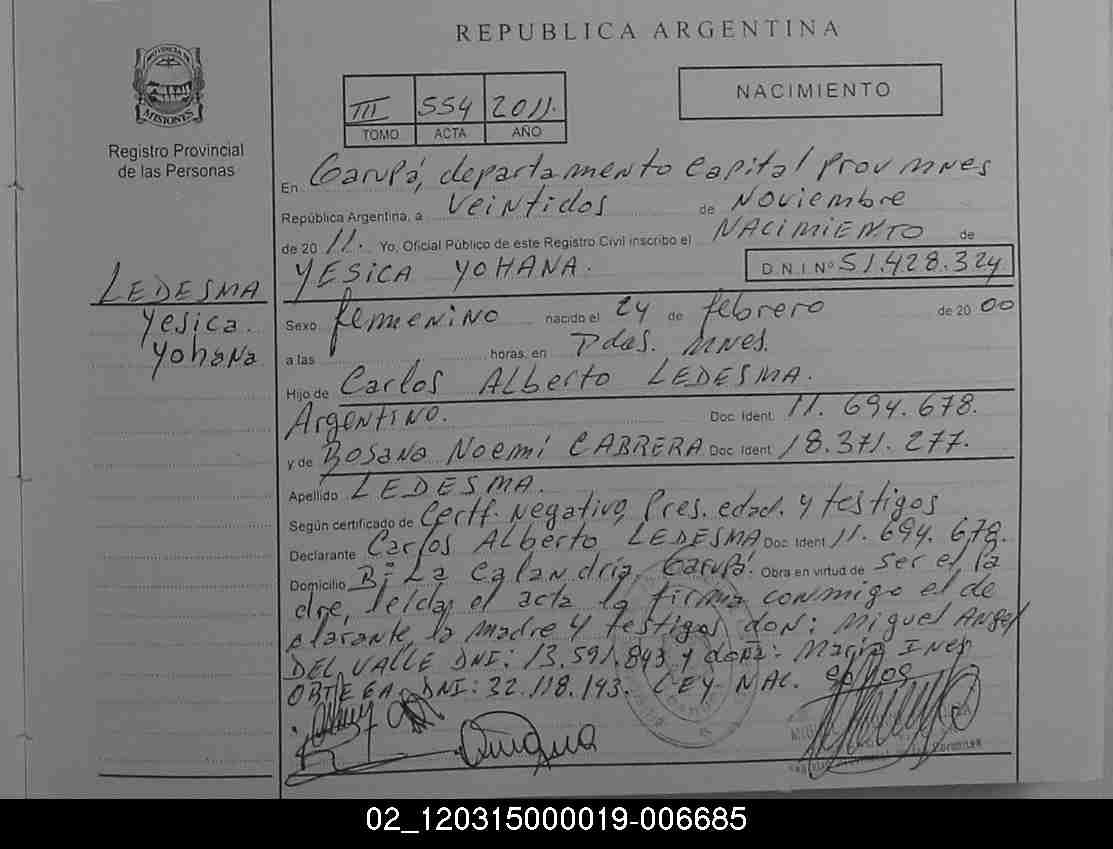 REPUBLICA ARGENTINA
PROVINCIA DE
MISIONES
Registro Provincial
de las Personas
III 554 2011.
TOMO ACTA AÑO
NACIMIENTO
LEDESMA
Yesica
Yohana
En Garupá, departamento Capital Prov MNES
República Argentina, a Veintidos de Noviembre
de 20 11. Yo, Oficial Público de este Registro Civil inscribo el NACIMIENTO de
YESICA YOHANA. D.N.I Nº 51.428.324
Sexo femenino nacido el 24 de febrero de 20 00
a las horas, en Pdas. MNES.
Hijo de Carlos Alberto LEDESMA.
Argentino. Doc. Ident. 11.694.678.
y de Rosana Noemí CABRERA Doc. Ident. 18.371.277.
Apellido LEDESMA.
Según certificado de Certf. Negativo, Pres. edad. y testigos
Declarante Carlos Alberto LEDESMA Doc. Ident. 11.694.678.
Domicilio Bº La Calandria, Garupá. Obra en virtud de ser el Pa
dre, leída el acta la firma conmigo el de
clarante, la madre y testigos don: Miguel Angel
DEL VALLE DNI: 13.591.843 y doña: Maria Ines
ORTEGA DNI: 32.118.143. LEY NAC.
02_120315000019-006685